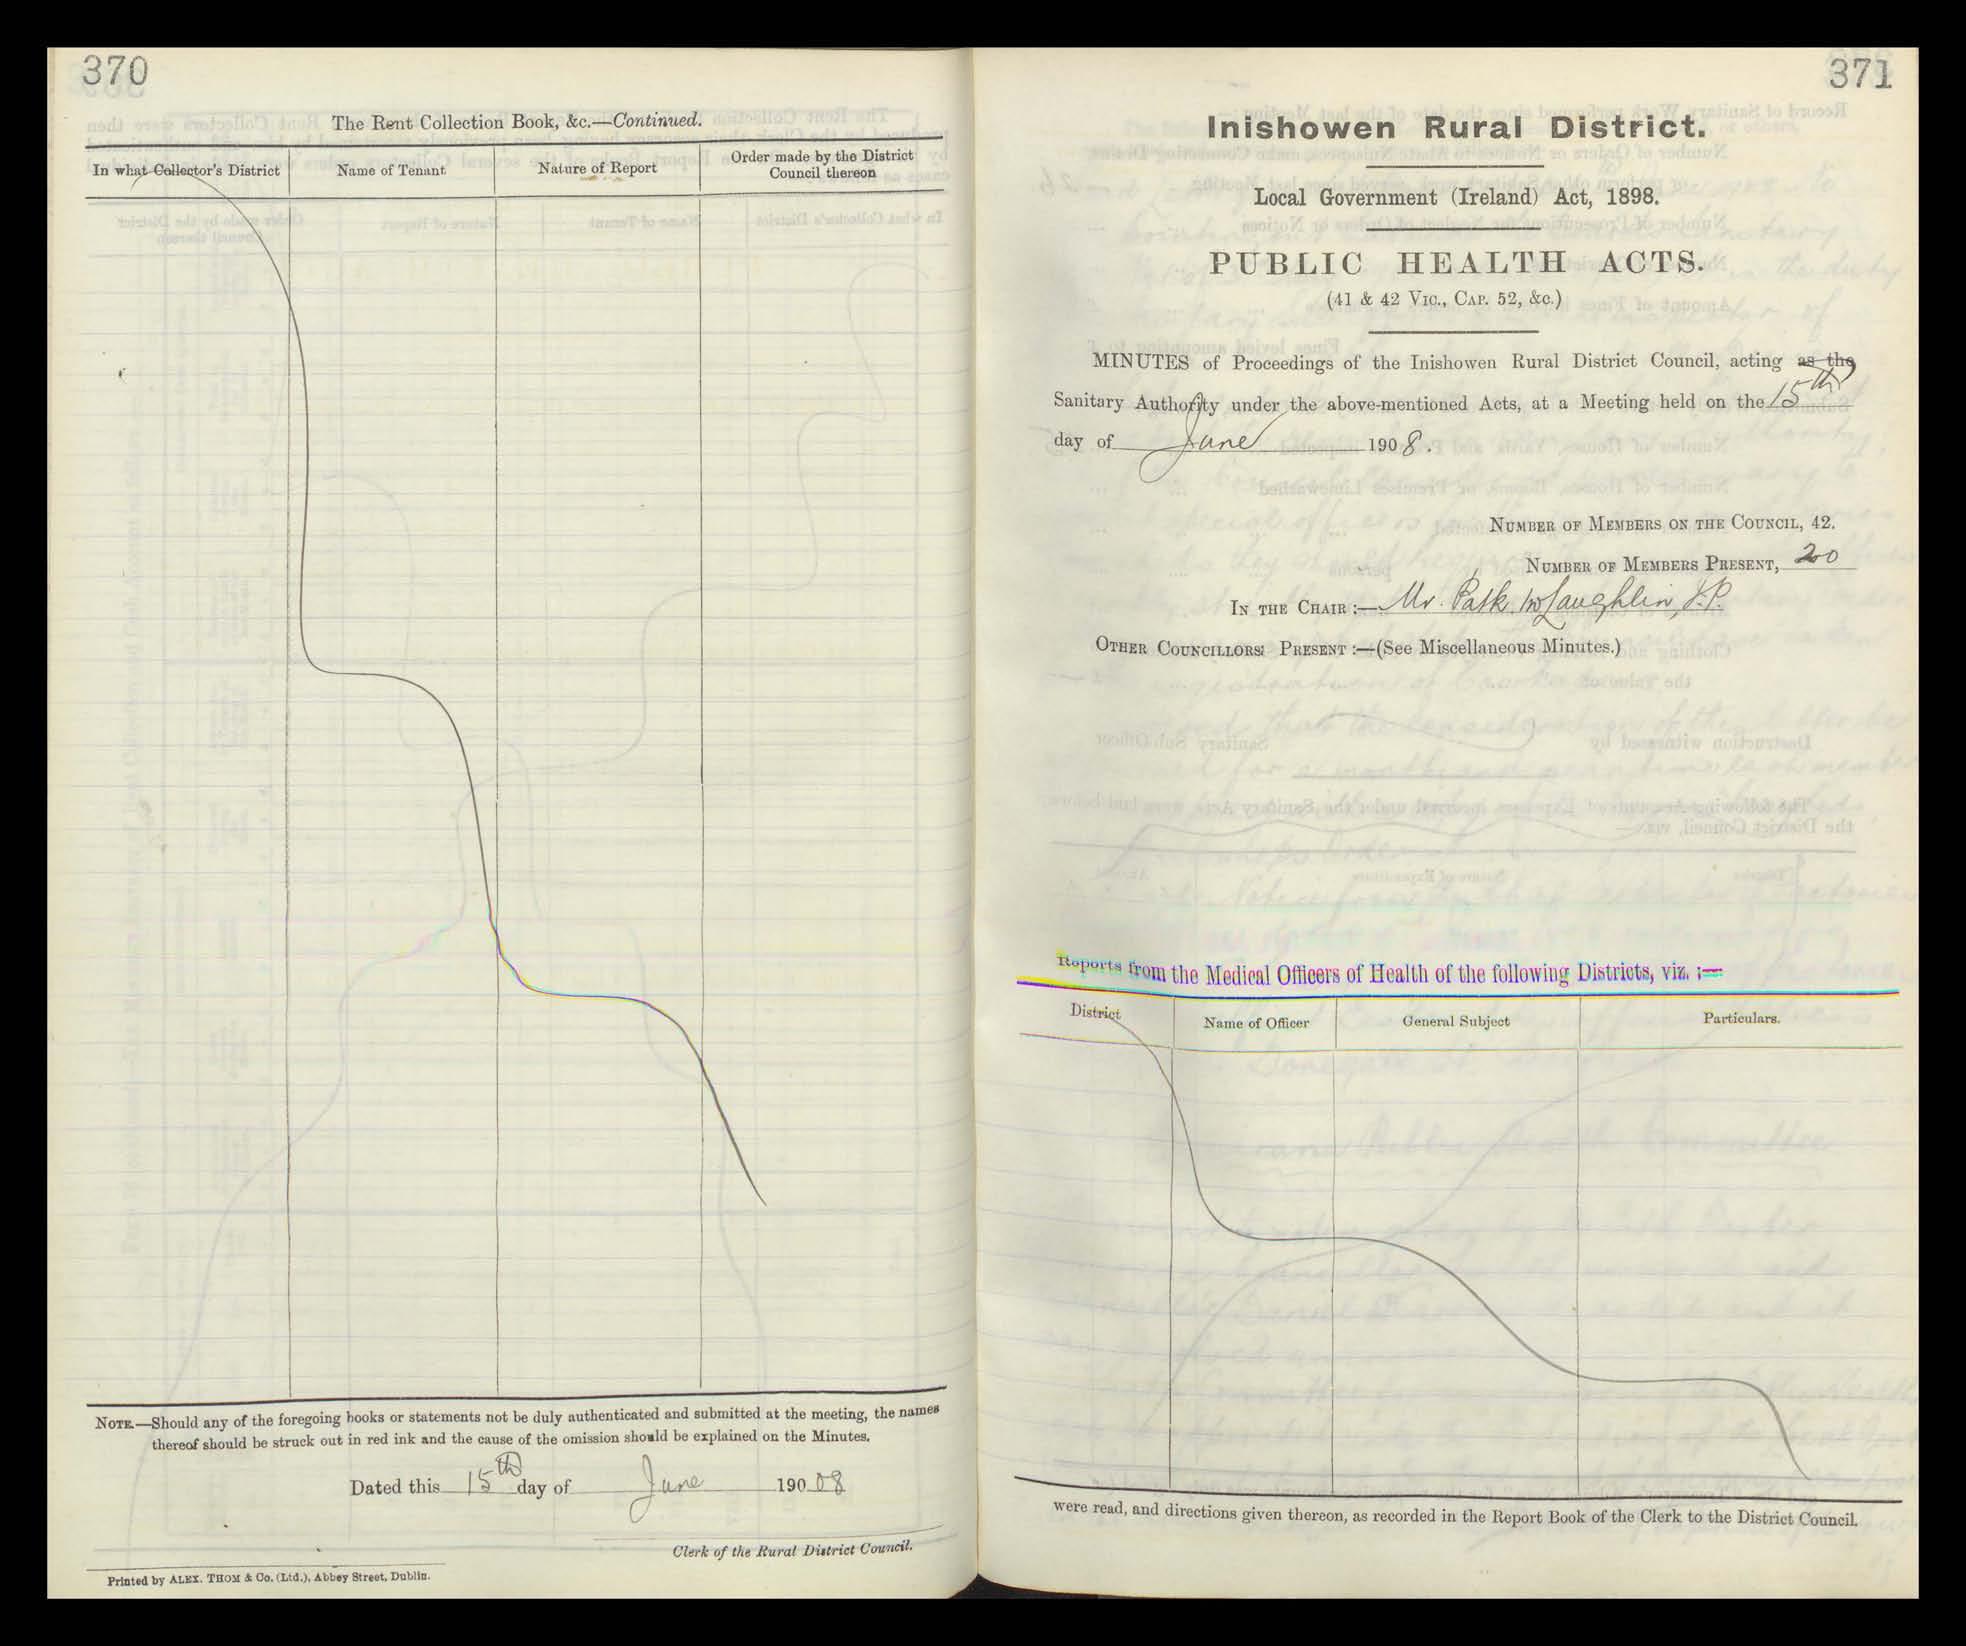 370
The Rent Collection Book, &c.—Continued.
In what Collector's District
Name of Tenant
Nature of Report
Order made by the District
Council thereon
NOTE.—Should any of the foregoing books or statements not be duly authenticated and submitted at the meeting, the names
thereof should be struck out in red ink and the cause of the omission should be explained on the Minutes.
Dated this 15th day of June 190 08
Clerk of the Rural District Council.
Printed by ALEX. THOM & Co. (Ltd.), Abbey Street, Dublin.
371
Inishowen Rural District.
Local Government (Ireland) Act, 1898.
PUBLIC HEALTH ACTS.
(41 & 42 VIC., CAP. 52, &c.)
MINUTES of Proceedings of the Inishowen Rural District Council, acting as the
Sanitary Authority under the above-mentioned Acts, at a Meeting held on the 15th
day of June 1908.
NUMBER OF MEMBERS ON THE COUNCIL, 42.
NUMBER OF MEMBERS PRESENT, 20
IN THE CHAIR :— Mr. Patk. McLaughlin, J.P.
OTHER COUNCILLORS PRESENT :—(See Miscellaneous Minutes.)
Reports from the Medical Officers of Health of the following Districts, viz. :—
District
Name of Officer
General Subject
Particulars.
were read, and directions given thereon, as recorded in the Report Book of the Clerk to the District Council.